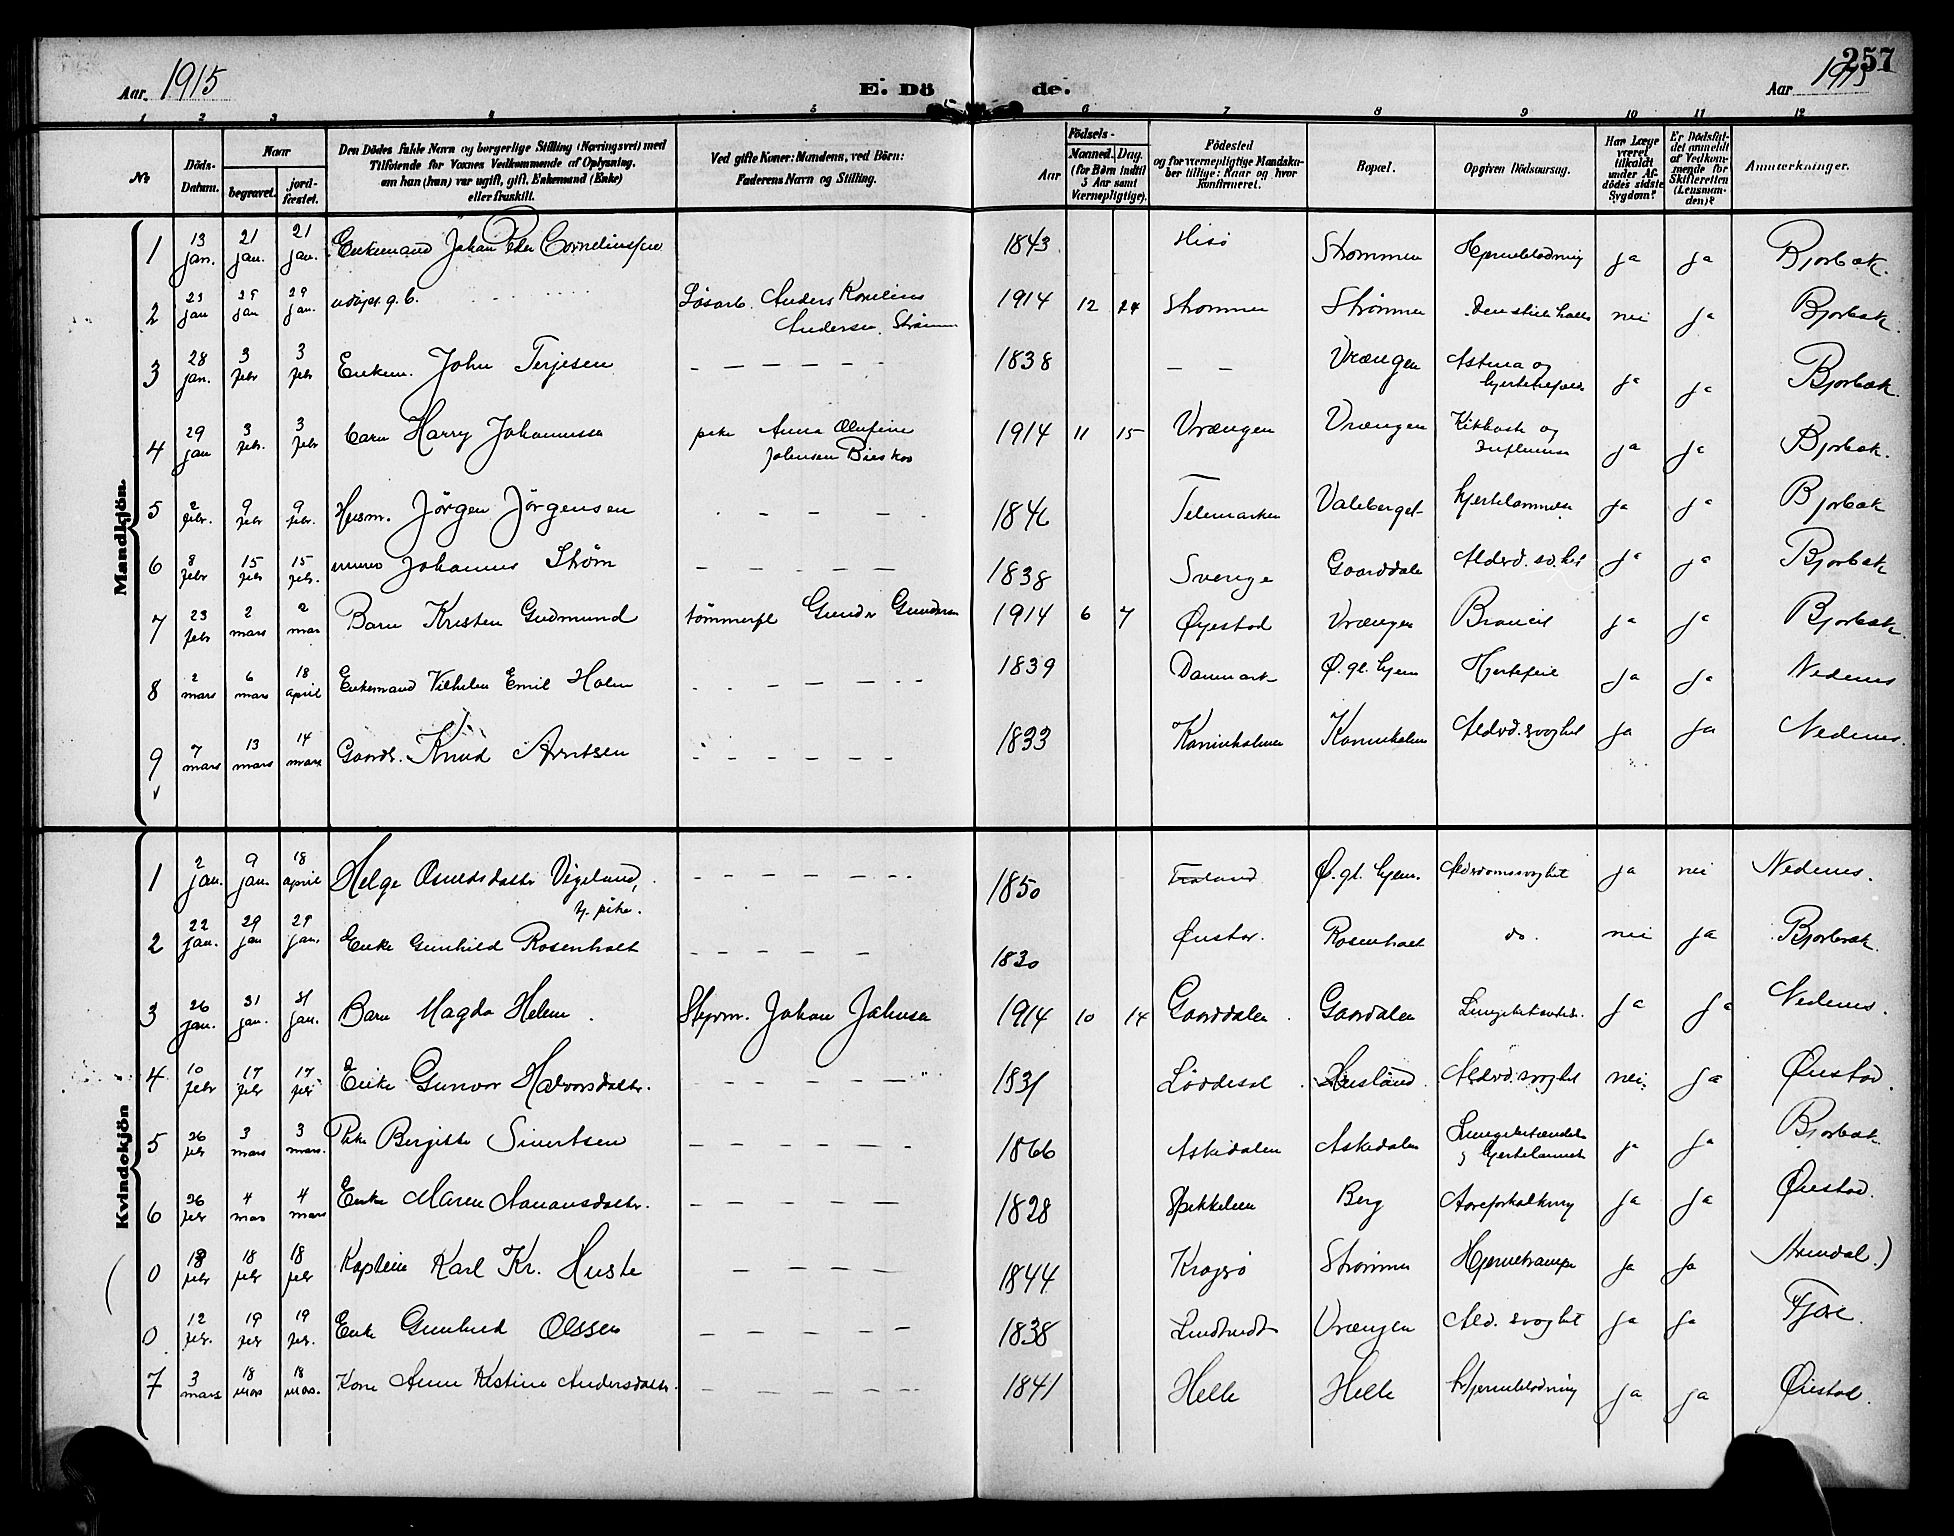 257
Aar 1915 E. Dö de. Aar 1915
1 2 3 4 5 6 7 8 9 10 11 12
No
Döds-Datum.
Naar
begravet.
jord-fæstet.
Den Dödes fulde Navn og borgerlige Stilling (Næringsvei) med
Tilföiende for Voxnes Vedkommende af Oplysning,
om han (hun) var ugift, gift, Enkemand (Enke)
eller fraskilt.
Ved gifte Koner: Mandens, ved Börn:
Faderens Navn og Stilling.
Födsels-
Aar
Maaned. Dag.
(for Börn indtil
5 Aar samt
Værnepligtige).
Födested
og for værnepligtige Mandska-
ber tillige: Naar og hvor
konfirmeret.
Bopæl.
Opgiven Dödsaarsag.
Har Læge
været
tilkaldt
under Af-
dödes sidste
Sygdom?
Er Dödsfal-
det anmeldt
af Vedkom-
mende for
Skifteretten
(Lensman-
den)?
Anmærkninger.
Mandkjön.
1 13 jan. 21 jan. 21 jan. Enkemand Johan Peder Corneliussen 1843 Hisö Strømmen Hjerneblødning ja ja Bjorbæk.
2 23 jan 29 jan 29 jan. udøpt g.b. Løsarb. Anders Kornelius
Andersen, Strømm 1914 12 24 Strømmen Strømmen nei ja Bjorbæk.
3 28 jan. 3 febr 3 febr Enkem. John Terjesen – – – – – – 1838 – – Vrængen Astma og
ja ja Bjorbæk.
4 29 jan 3 febr. 3 febr barn Harry Johannessen pike Anna Olufine
Johnsen 1914 11 15 Vrængen Vrængen Kikhoste og
Influensa ja ja Bjorbæk.
5 2 febr. 9 febr 9 febr. Husm. Jörgen Jörgensen 1846 Telemarken Valeberget hjertelammelse ja ja Bjorbæk
6 8 febr 15 febr 15 febr. Johannes Strøm – – – – – 1838 Sverige Gaarddale Alderd.sv.het ja ja Bjorbæk
7 23 febr 2 mars 2 mars Barn Kristen Gudmund tömmerfl Gunder Gundersen 1914 6 7 Øyestad Vrængen ja ja Bjorbæk.
8 2 mars 6 mars 18 april Enkemand Vilhelm Emil Holm 1839 Danmark Ø. gl. hjem Hjertefeil ja ja Nedenes
9 7 mars 13 mars 14 mars Gaardr. Knud Arntsen 1833 Kaninholmen Kaninholmen Alderd.svaghet ja ja Nedenes.
Kvindekjön
1 2 jan. 9 jan. 18 april Helge Osmundsdatter Vigeland,
pike. 1850 Froland Ø. gl. hjem. Alderdomssvaghet ja nei Nedenes.
2 22 jan. 29 jan 29 jan. Enke Gunhild Rosenholt 1830 Øiestad. Rosenholt do. nei ja Bjorbæk.
3 26 jan. 31 jan. 31 jan. Barn Magda Helene Styrm. Johan Johnsen 1914 10 14 Gaarddalen Gaardalen ja ja Nedenes.
4 10 febr 17 febr 17 febr Enke Gunvor Halvorsdatter. 1831 Løddesøl Alderd.svaghet nei. ja Øiestad.
5 26 febr 3 mars 3 mars. Pike Bergitte Sivertsen 1866 Askedalen Askedalen Lungebetændelse
og hjertelammelse ja ja Bjorbæk.
6 26 febr 4 mars 4 mars Enke Maren Aanansdatter. 1828 Berg Aareforkalkning ja ja Øiestad.
( 0 18 febr 18 febr Kaptein Karl Kr. Huste 1844 Kragerø Strømmen ja ja Arendal.)
0 12 febr. 19 febr 19 febr. Enke Gunhild Olssen 1838 Vrængen Ald. svaghet ja ja Fjære.
7 3 mars 18 mars 18 mars. Kone Anne Kistine Andersdatter. 1841 Helle Helle Hjerneblødning ja ja Øiestad.